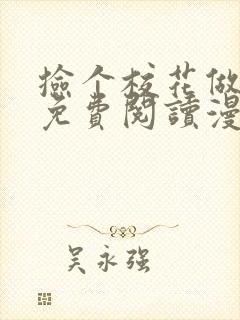 捡个校花做
免費閱讀漫
吴永强